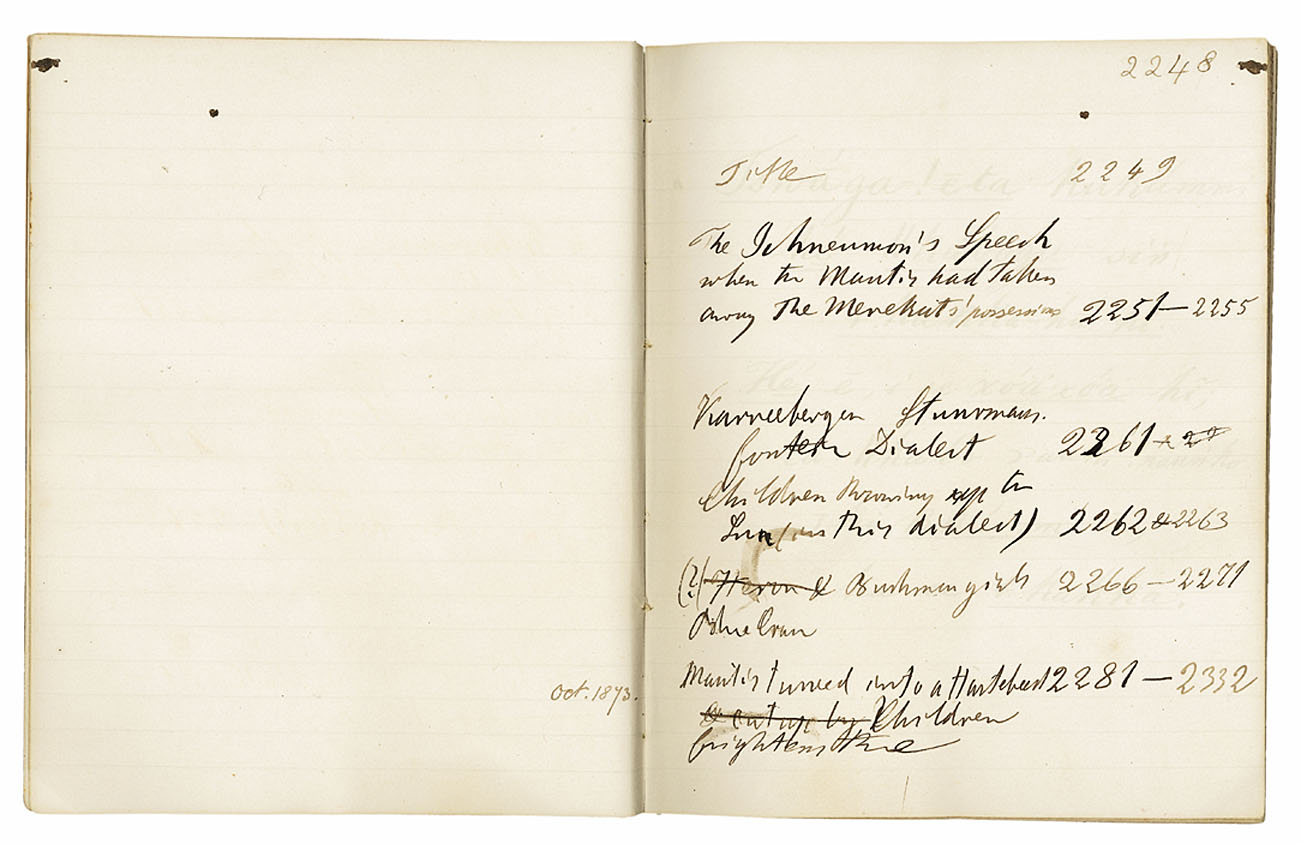 Oct. 1873.
2248
Title 2249
The Ichneumon's Speech
when the Mantis had taken
away the Merekats' possessions 2251—2255
Karreebergen
Dialect 2261
Children throwing up the
Sun (in this dialect) 2262 & 2263
(?) Heron & Bushman girls 2266—2271
Blue Crane
Mantis turned into a Hartebeest 2281—2332
& cut up by Children
frightens the